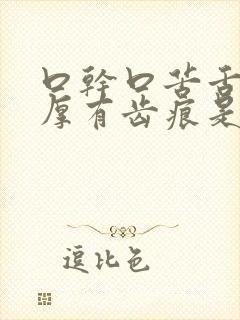 口幹口苦舌
厚有齿痕是
逗比色